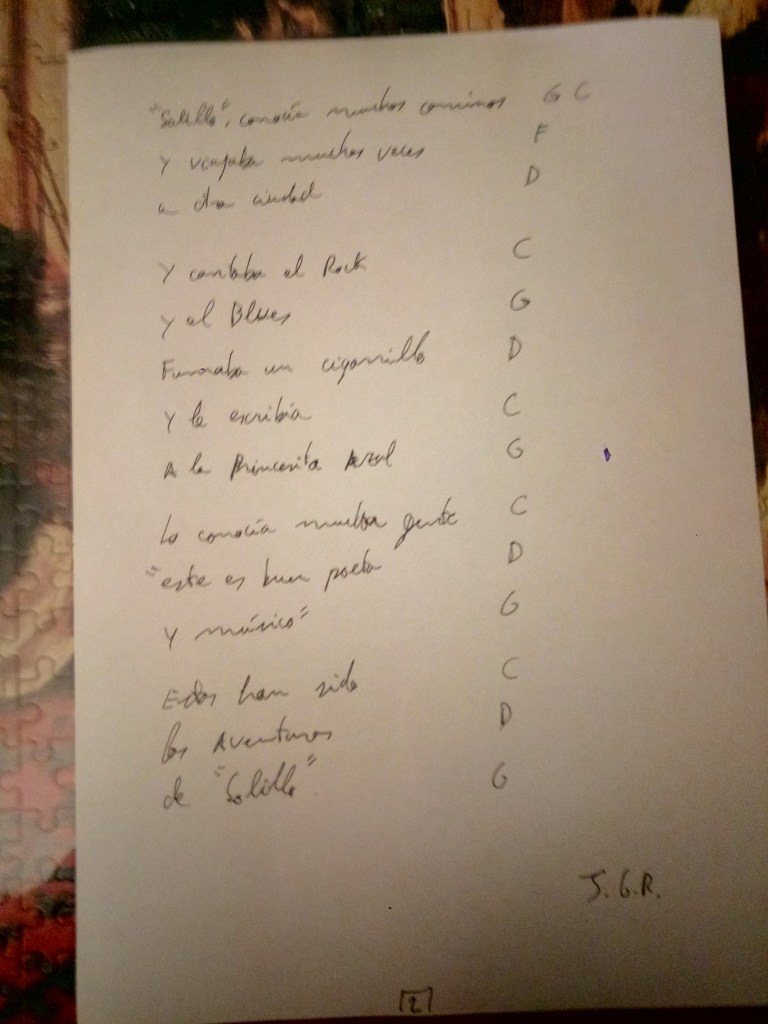 "Solillo", conocía muchos caminos G C
Y viajaba muchas veces F
a otra ciudad D
Y cantaba el Rock C
Y el Blues G
Fumaba un cigarrillo D
Y le escribía C
A la Princesita Azul G
Lo conocía mucha gente C
"este es buen poeta D
Y músico" G
Estas han sido C
las Aventuras D
de "Solillo". G
J. G. R.
2